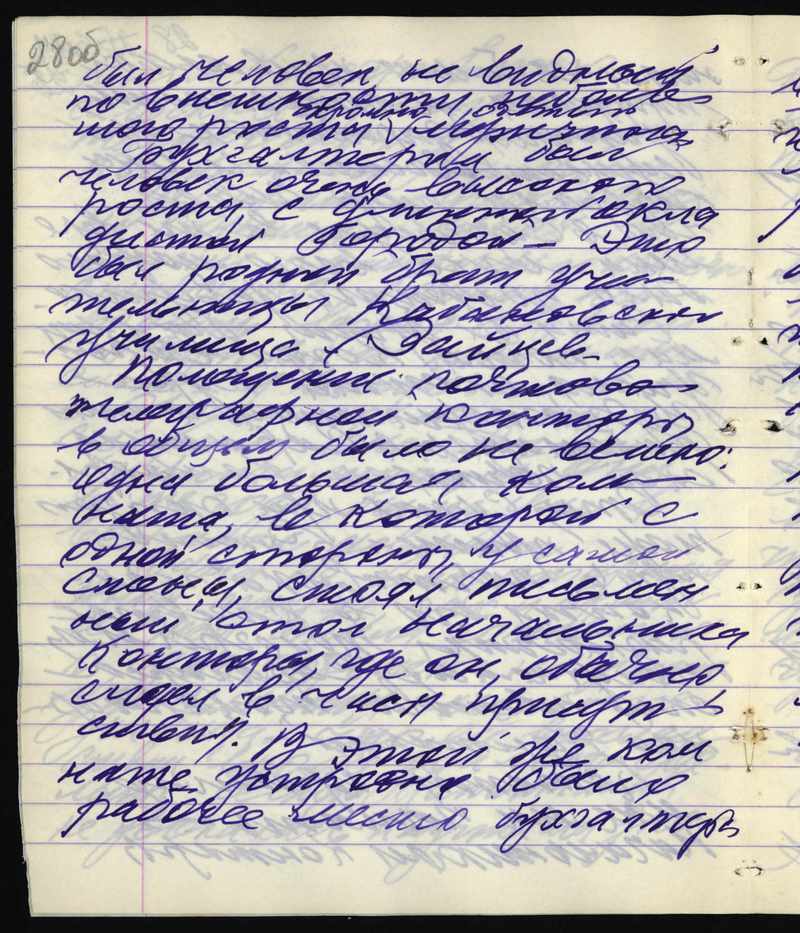 28об
был человек не видный
по внешности, неболь
шого роста,
Бухгалтером был
человек очень высокого
роста, с длинной окла
дистой бородой — Это
был родной брат учи
тельницы Кабановского
училища — Зайцев.
Помещение почтово
телеграфной конторы
в общем было не велико:
одна большая ком
ната, в которой с
одной стороны, у самой
стены, стоял письмен
ный стол начальника
конторы, где он обычно
сидел в часы присут
ствия. В этой же ком
нате устроено было
рабочее место бухгалтера